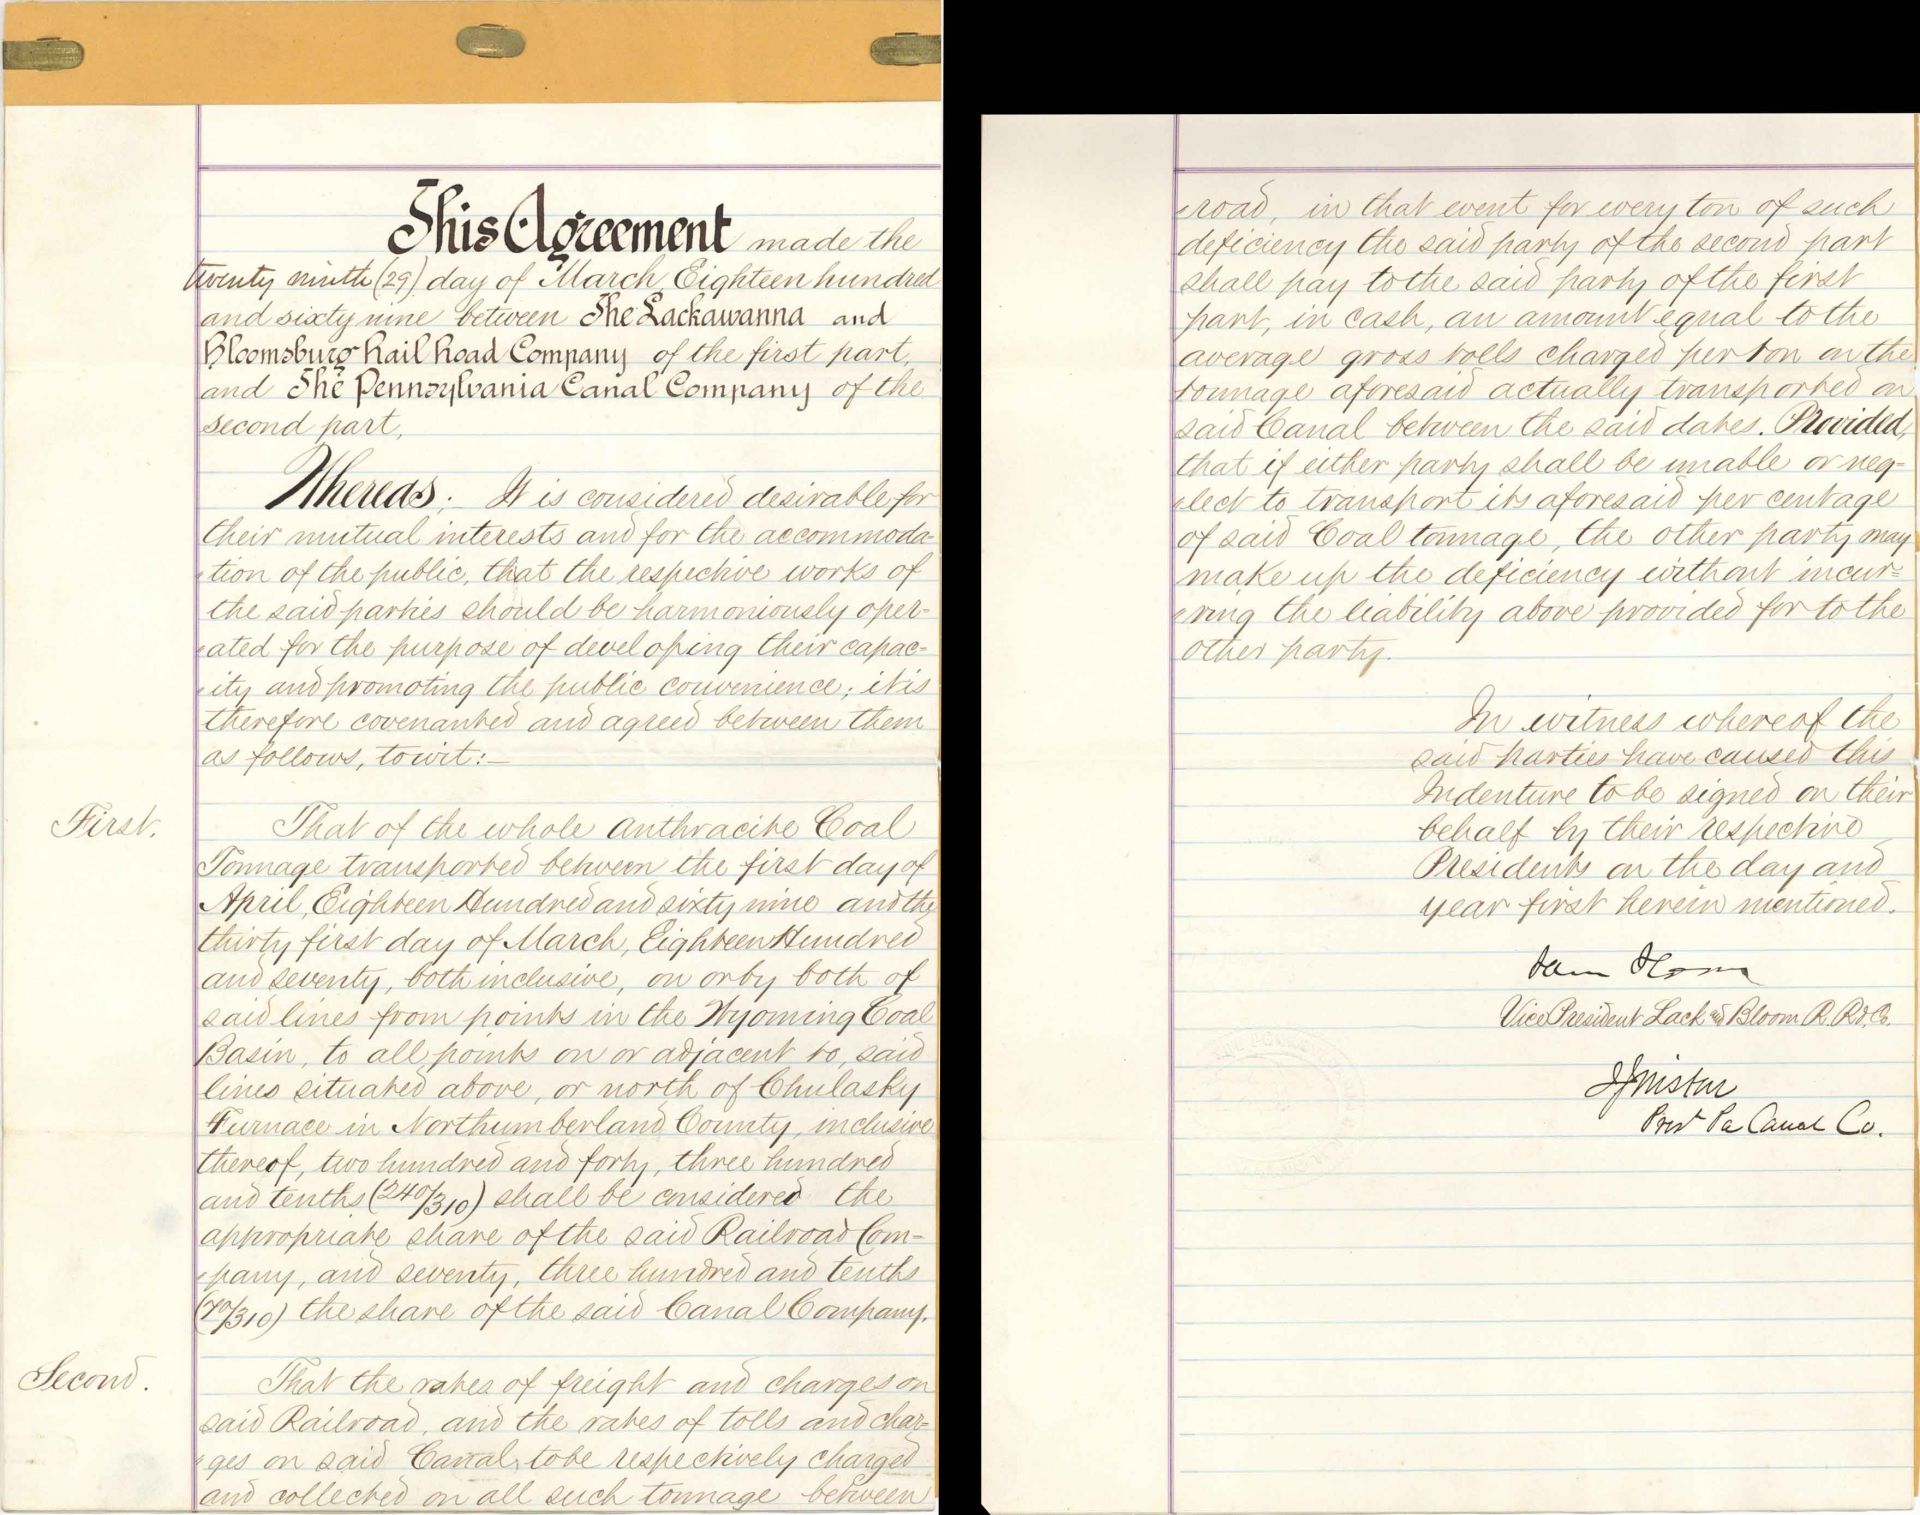 This Agreement made the
twenty ninth (29) day of March, Eighteen hundred
and sixty nine between The Lackawanna and
Bloomsburg Rail Road Company of the first part,
and The Pennsylvania Canal Company of the
second part,
Whereas; It is considered desirable for
their mutual interests and for the accommoda=
tion of the public, that the respective works of
the said parties should be harmoniously oper=
ated for the purpose of developing their capac=
ity and promoting the public convenience; it is
therefore covenanted and agreed between them
as follows, to wit:—
First.
That of the whole Anthracite Coal
Tonnage transported between the first day of
April, Eighteen Hundred and sixty nine and the
thirty first day of March, Eighteen Hundred
and seventy, both inclusive, on or by both of
said lines from points in the Wyoming Coal
Basin, to all points on or adjacent to, said
lines situated above, or north of Chulasky
Furnace in Northumberland County, inclusive
thereof, two hundred and forty, three hundred
and tenths (240/310) shall be considered the
appropriate share of the said Railroad Com=
pany, and seventy, three hundred and tenths
(70/310) the share of the said Canal Company.
Second.
That the rates of freight and charges on
said Railroad, and the rates of tolls and char=
ges on said Canal, to be respectively charged
and collected on all such tonnage between
road, in that event for every ton of such
deficiency the said party of the second part
shall pay to the said party of the first
part, in cash, an amount equal to the
average gross tolls charged per ton on the
tonnage aforesaid actually transported on
said Canal between the said dates. Provided,
that if either party shall be unable or neg=
lect to transport its aforesaid per centage
of said Coal tonnage, the other party may
make up the deficiency without incur=
ring the liability above provided for to the
other party.
In witness whereof the
said parties have caused this
Indenture to be signed on their
behalf by their respective
Presidents on the day and
year first herein mentioned.
Vice President Lack and Bloom R. Rd. Co.
Prest Pa Canal Co.